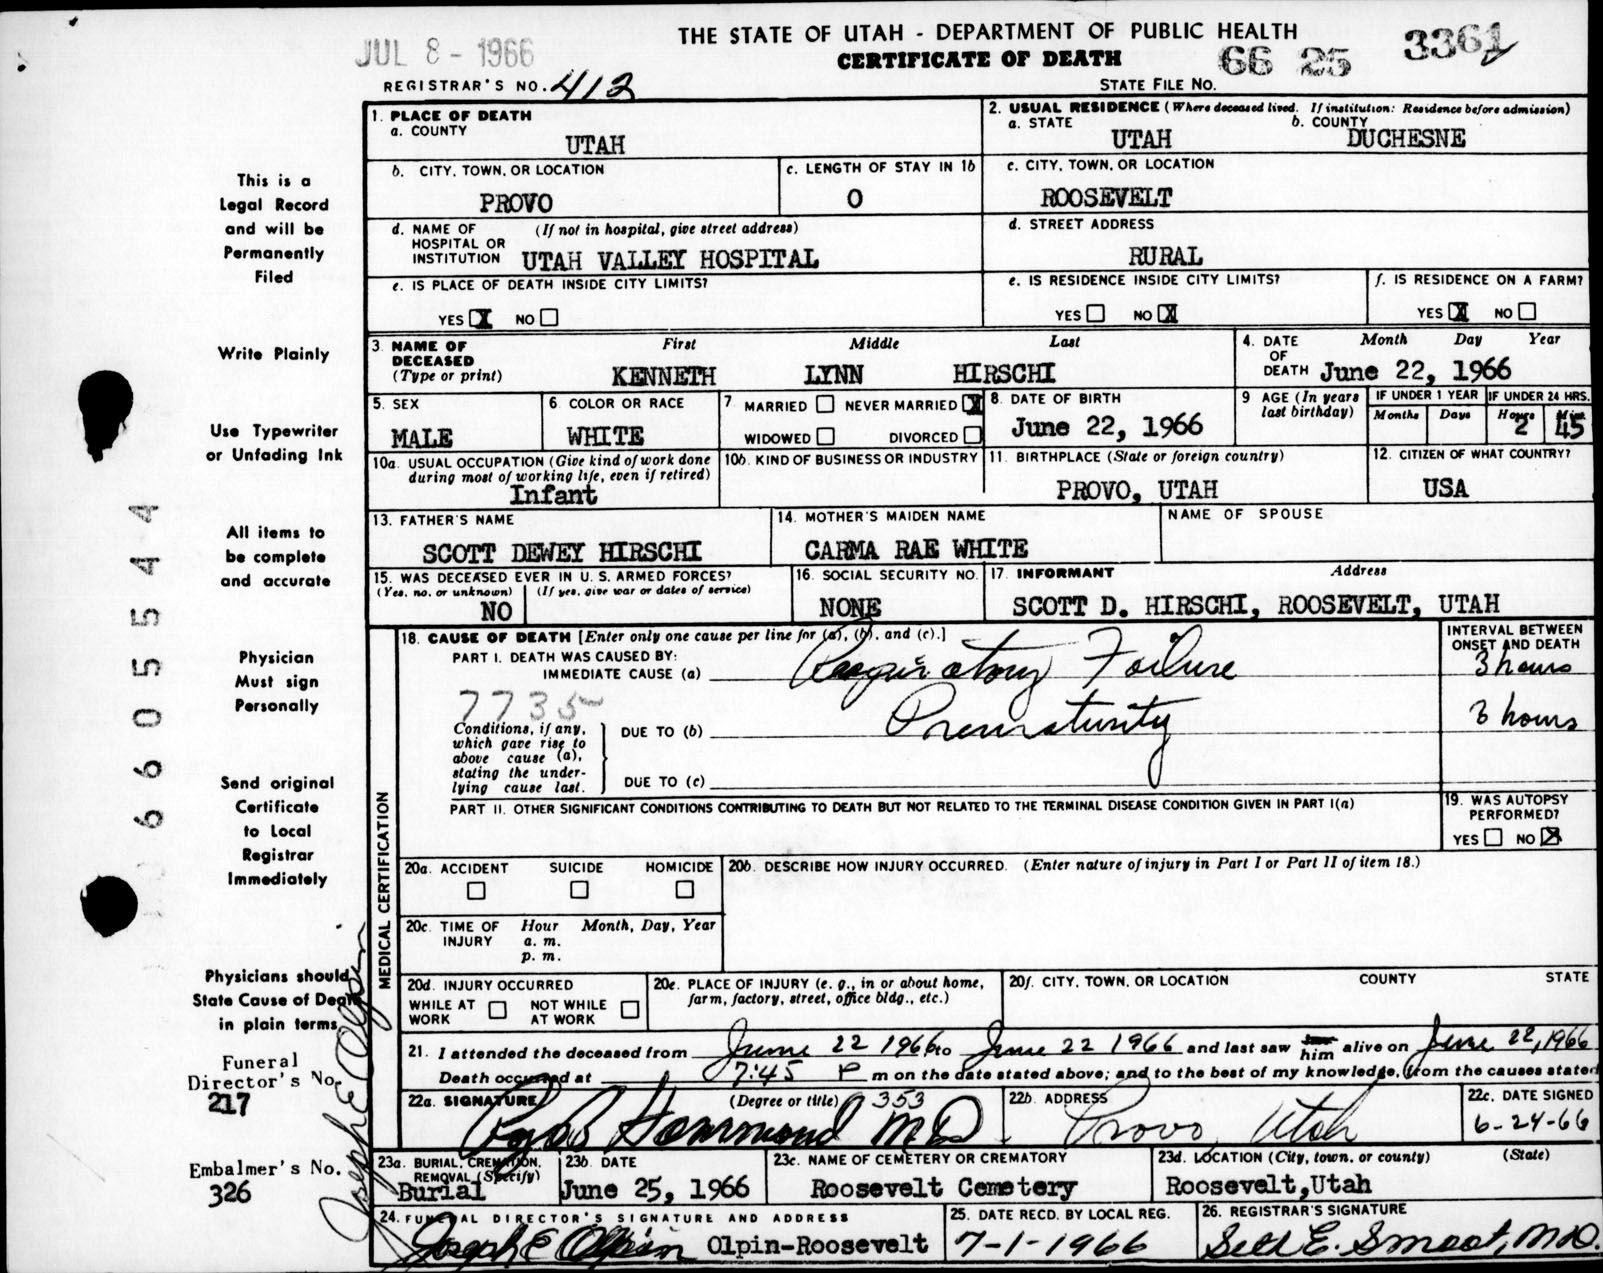 JUL 8 - 1966
THE STATE OF UTAH - DEPARTMENT OF PUBLIC HEALTH
CERTIFICATE OF DEATH
66 25 3361
REGISTRAR'S NO. 412
STATE FILE NO.
1. PLACE OF DEATH
a. COUNTY
UTAH
2. USUAL RESIDENCE (Where deceased lived. If institution: Residence before admission)
a. STATE
UTAH
b. COUNTY
DUCHESNE
b. CITY, TOWN, OR LOCATION
PROVO
c. LENGTH OF STAY IN 1b
0
c. CITY, TOWN, OR LOCATION
ROOSEVELT
d. NAME OF (If not in hospital, give street address)
HOSPITAL OR
INSTITUTION UTAH VALLEY HOSPITAL
d. STREET ADDRESS
RURAL
e. IS PLACE OF DEATH INSIDE CITY LIMITS?
YES X NO
e. IS RESIDENCE INSIDE CITY LIMITS?
YES NO X
f. IS RESIDENCE ON A FARM?
YES X NO
3. NAME OF DECEASED
(Type or print)
First Middle Last
KENNETH LYNN HIRSCHI
4. DATE OF DEATH
Month Day Year
June 22, 1966
5. SEX
MALE
6. COLOR OR RACE
WHITE
7. MARRIED NEVER MARRIED X
WIDOWED DIVORCED
8. DATE OF BIRTH
June 22, 1966
9. AGE (In years last birthday)
IF UNDER 1 YEAR
Months Days
IF UNDER 24 HRS.
Hours Min.
2 45
10a. USUAL OCCUPATION (Give kind of work done
during most of working life, even if retired)
Infant
10b. KIND OF BUSINESS OR INDUSTRY
11. BIRTHPLACE (State or foreign country)
PROVO, UTAH
12. CITIZEN OF WHAT COUNTRY?
USA
13. FATHER'S NAME
SCOTT DEWEY HIRSCHI
14. MOTHER'S MAIDEN NAME
CARMA RAE WHITE
NAME OF SPOUSE
15. WAS DECEASED EVER IN U. S. ARMED FORCES?
(Yes, no, or unknown) (If yes, give war or dates of service)
NO
16. SOCIAL SECURITY NO.
NONE
17. INFORMANT Address
SCOTT D. HIRSCHI, ROOSEVELT, UTAH
MEDICAL CERTIFICATION
18. CAUSE OF DEATH [Enter only one cause per line for (a), (b), and (c).]
PART I. DEATH WAS CAUSED BY:
IMMEDIATE CAUSE (a) Respiratory Failure
INTERVAL BETWEEN
ONSET AND DEATH
3 hours
7735
Conditions, if any,
which gave rise to
above cause (a),
stating the under-
lying cause last.
DUE TO (b) Prematurity
3 hours
DUE TO (c)
PART II. OTHER SIGNIFICANT CONDITIONS CONTRIBUTING TO DEATH BUT NOT RELATED TO THE TERMINAL DISEASE CONDITION GIVEN IN PART I(a)
19. WAS AUTOPSY
PERFORMED?
YES NO X
20a. ACCIDENT SUICIDE HOMICIDE
20b. DESCRIBE HOW INJURY OCCURRED. (Enter nature of injury in Part I or Part II of item 18.)
20c. TIME OF INJURY
Hour Month, Day, Year
a. m.
p. m.
20d. INJURY OCCURRED
WHILE AT WORK NOT WHILE AT WORK
20e. PLACE OF INJURY (e. g., in or about home,
farm, factory, street, office bldg., etc.)
20f. CITY, TOWN, OR LOCATION COUNTY STATE
21. I attended the deceased from June 22 1966 to June 22 1966 and last saw him alive on June 22, 1966
Death occurred at 7:45 P m on the date stated above; and to the best of my knowledge, from the causes stated
22a. SIGNATURE (Degree or title) 353
Hammond MD.
22b. ADDRESS
Provo, Utah
22c. DATE SIGNED
6-24-66
23a. BURIAL, CREMATION,
REMOVAL (Specify)
Burial
23b. DATE
June 25, 1966
23c. NAME OF CEMETERY OR CREMATORY
Roosevelt Cemetery
23d. LOCATION (City, town, or county) (State)
Roosevelt, Utah
24. FUNERAL DIRECTOR'S SIGNATURE AND ADDRESS
Joseph E Olpin Olpin-Roosevelt
25. DATE RECD. BY LOCAL REG.
7-1-1966
26. REGISTRAR'S SIGNATURE
E. Smoot, MD.
This is a
Legal Record
and will be
Permanently
Filed
Write Plainly
Use Typewriter
or Unfading Ink
All items to
be complete
and accurate
Physician
Must sign
Personally
Send original
Certificate
to Local
Registrar
Immediately
Physicians should
State Cause of Death
in plain terms
Funeral
Director's No.
217
Embalmer's No.
326
Joseph E Olpin
6605544